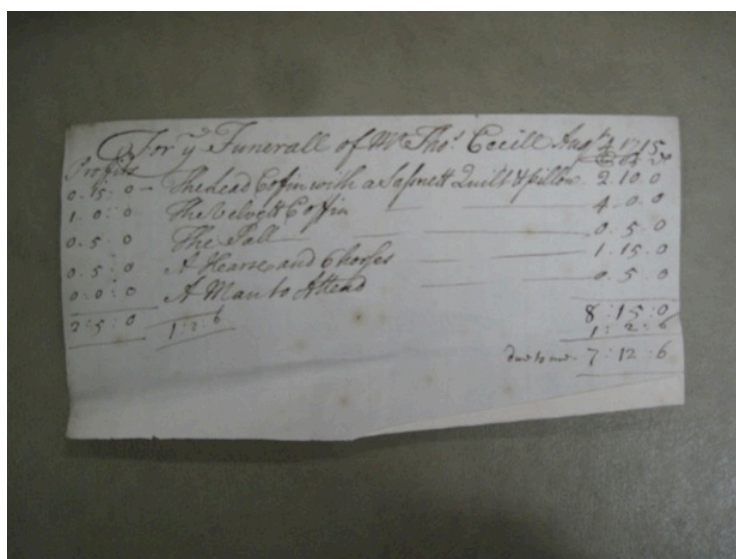 For ye Funerall of Mr Thos Cecill Augt 4 1715
Profits
0. 15. 0 - The Lead Coffin with a Sasnett Quilt & pillow 2. 10. 0
1. 0. 0 The Velvett Coffin 4. 0. 0
0. 5. 0 The Pall 0. 5. 0
0. 5. 0 A Hearse and 6 horses 1. 15. 0
0. 0. 0 A Man to Attend 0. 5. 0
2: 5. 0 1: 2: 6 8: 15: 0
1: 2: 6
due to me - 7: 12: 6